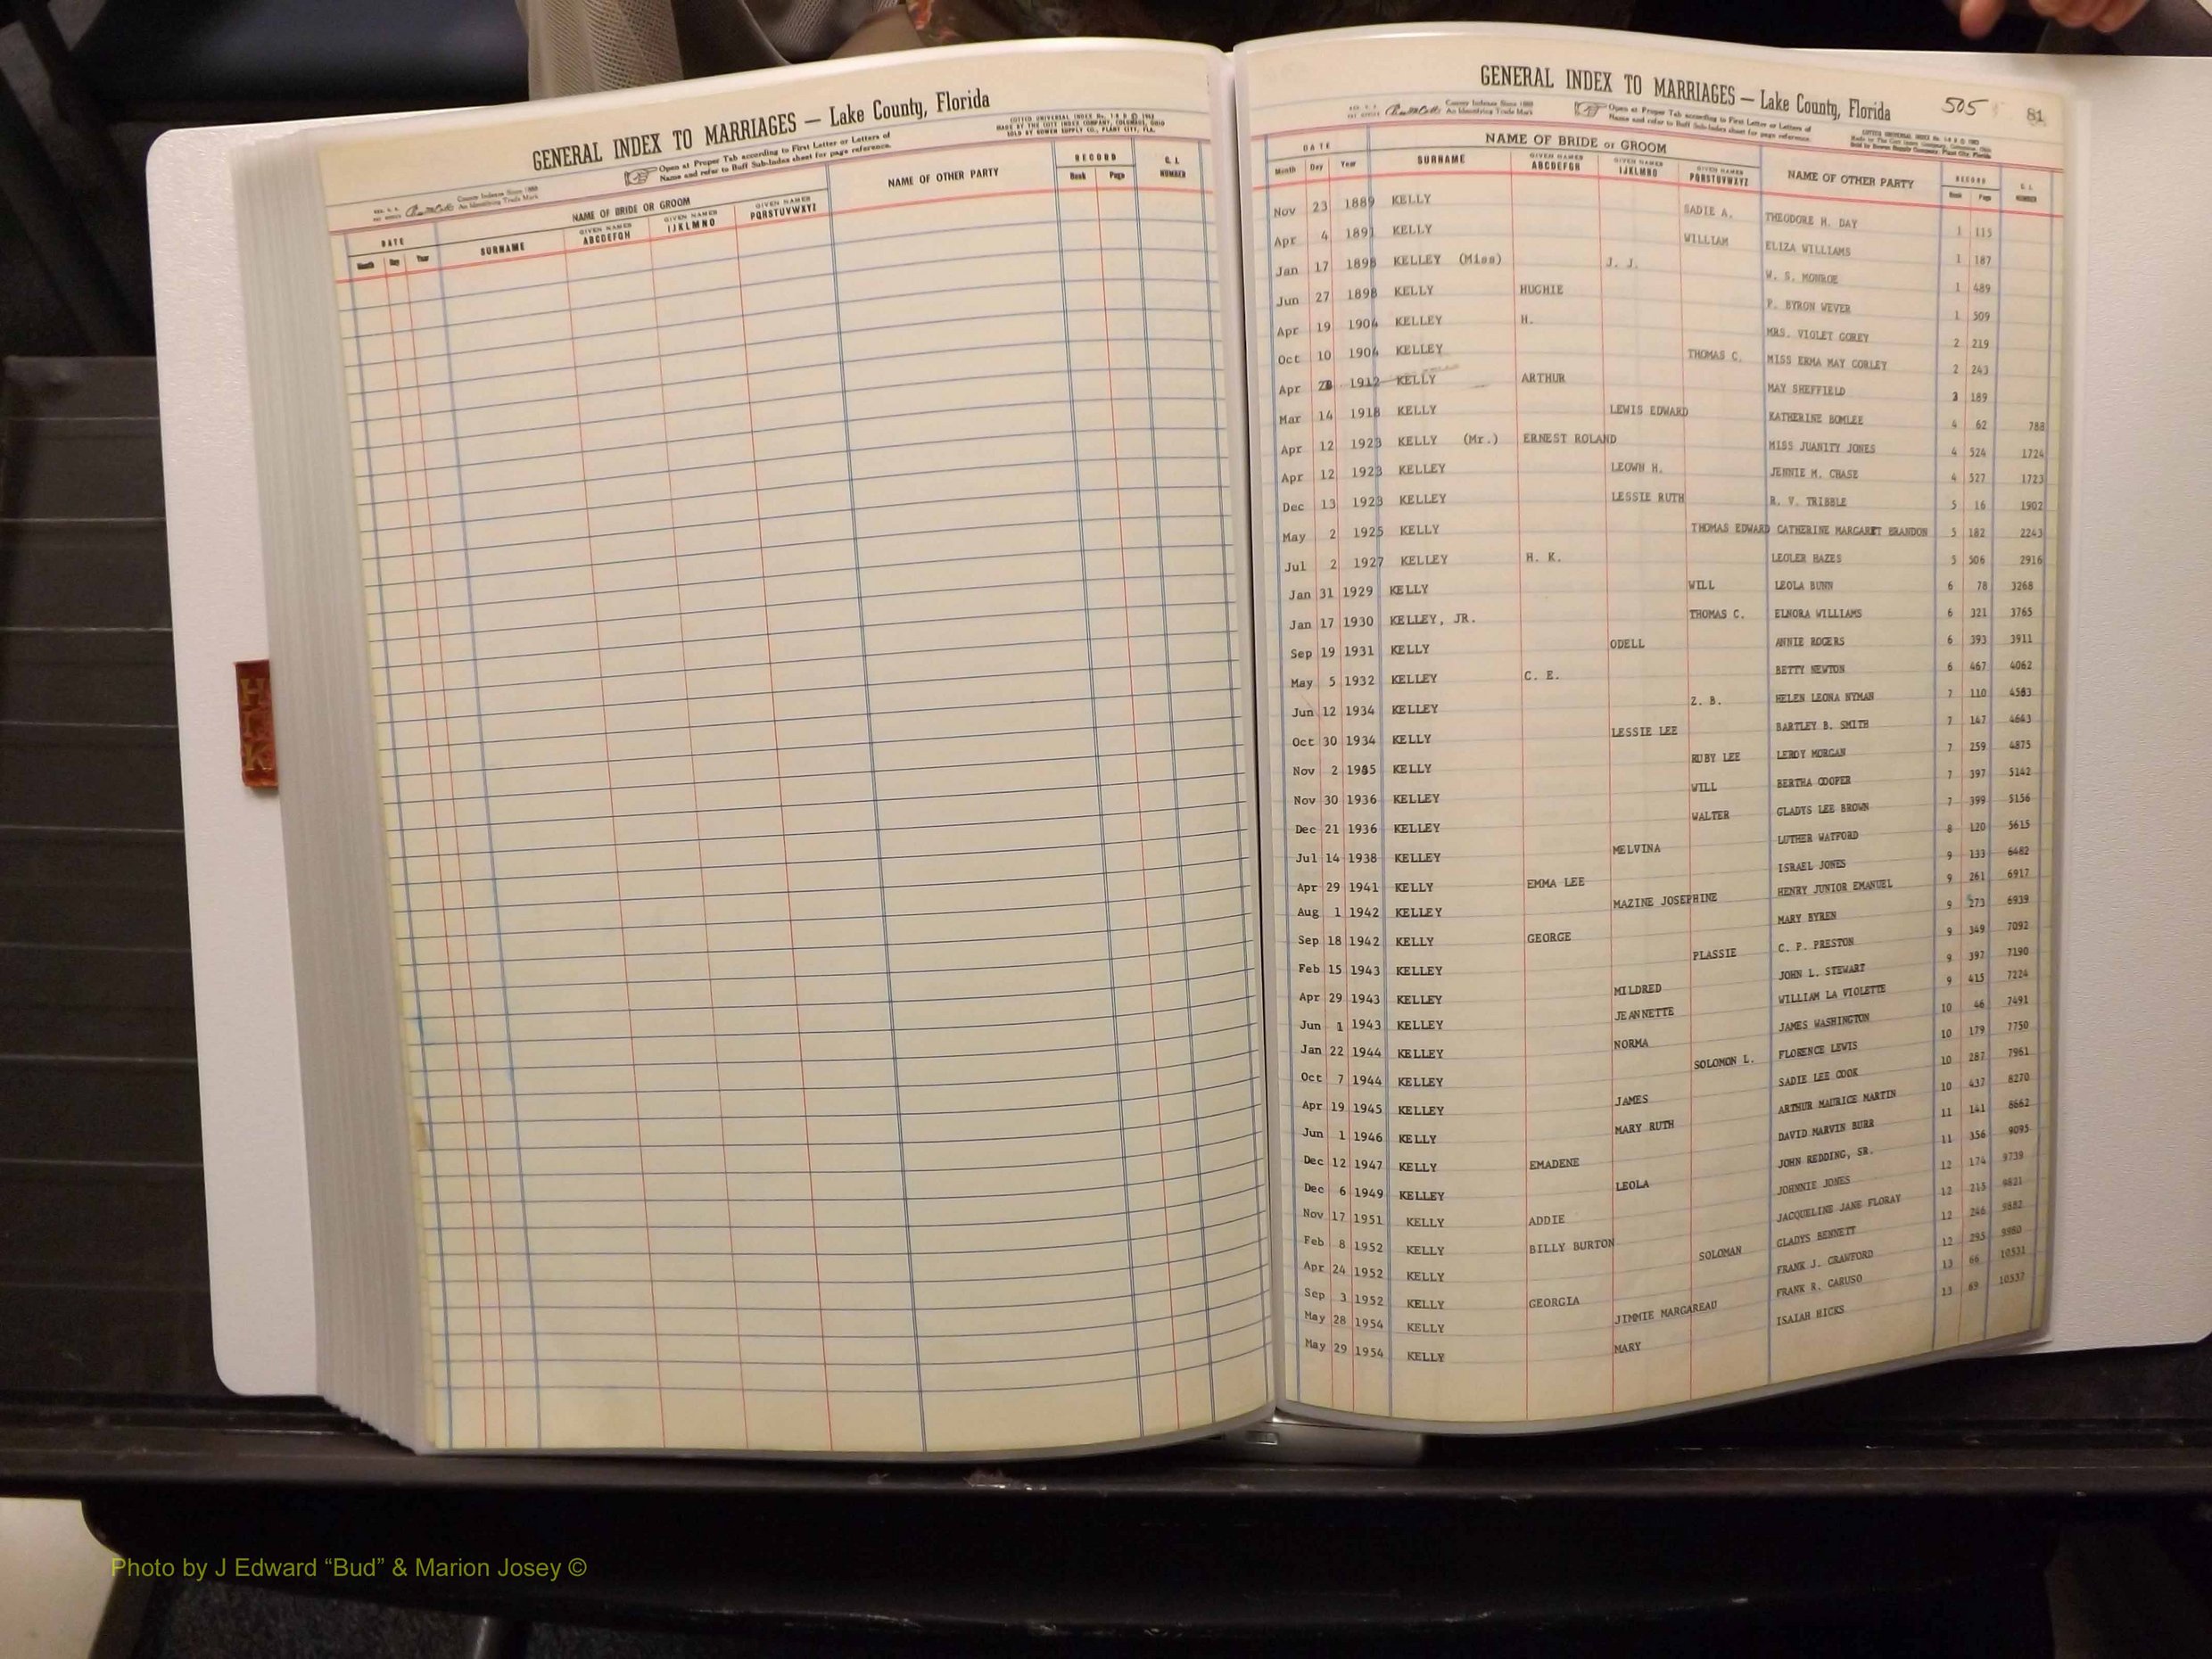 GENERAL INDEX TO MARRIAGES — Lake County, Florida
Open at Proper Tab according to First Letter or Letters of
Name and refer to Buff Sub-Index sheet for page reference.
County Indexes Since 1888
An Identifying Trade Mark
COTTED UNIVERSAL INDEX
MADE BY THE COTT INDEX COMPANY, COLUMBUS, OHIO
SOLD BY BOWEN SUPPLY CO., PLANT CITY, FLA.
DATE NAME OF BRIDE OR GROOM NAME OF OTHER PARTY RECORD
Month Day Year SURNAME GIVEN NAMES ABCDEFGH GIVEN NAMES IJKLMNO GIVEN NAMES PQRSTUVWXYZ Book Page NUMBER
H
I
K
GENERAL INDEX TO MARRIAGES — Lake County, Florida 505 81
County Indexes Since 1888
An Identifying Trade Mark
Open at Proper Tab according to First Letter or Letters of
Name and refer to Buff Sub-Index sheet for page reference.
DATE NAME OF BRIDE or GROOM NAME OF OTHER PARTY RECORD
Month Day Year SURNAME GIVEN NAMES ABCDEFGH GIVEN NAMES IJKLMNO GIVEN NAMES PQRSTUVWXYZ Book Page NUMBER
Nov 23 1889 KELLY SADIE A. THEODORE H. DAY 1 115
Apr 4 1891 KELLY WILLIAM ELIZA WILLIAMS 1 187
Jan 17 1898 KELLEY (Miss) J. J. W. S. MONROE 1 489
Jun 27 1898 KELLY HUGHIE F. BYRON WEVER 1 509
Apr 19 1904 KELLEY H. MRS. VIOLET COREY 2 219
Oct 10 1904 KELLEY THOMAS C. MISS ERMA MAY CORLEY 2 243
Apr 1912 KELLY ARTHUR MAY SHEFFIELD 3 189
Mar 14 1918 KELLY LEWIS EDWARD KATHERINE BOMLEE 4 62 788
Apr 12 1923 KELLY (Mr.) ERNEST ROLAND MISS JUANITY JONES 4 524 1724
Apr 12 1923 KELLEY LEOWN H. JENNIE M. CHASE 4 527 1723
Dec 13 1923 KELLEY LESSIE RUTH R. V. TRIBBLE 5 16 1902
May 2 1925 KELLY THOMAS EDWARD CATHERINE MARGARET BRANDON 5 182 2243
Jul 2 1927 KELLEY H. K. LEOLER HAZES 5 506 2916
Jan 31 1929 KELLY WILL LEOLA BUNN 6 78 3268
Jan 17 1930 KELLEY, JR. THOMAS C. ELNORA WILLIAMS 6 321 3765
Sep 19 1931 KELLY ODELL ANNIE ROGERS 6 393 3911
May 5 1932 KELLEY C. E. BETTY NEWTON 6 467 4062
Jun 12 1934 KELLEY Z. B. HELEN LEONA NYMAN 7 110 4583
Oct 30 1934 KELLY LESSIE LEE BARTLEY B. SMITH 7 147 4643
Nov 2 1935 KELLY RUBY LEE LEROY MORGAN 7 259 4875
Nov 30 1936 KELLEY WILL BERTHA COOPER 7 397 5142
Dec 21 1936 KELLEY WALTER GLADYS LEE BROWN 7 399 5156
Jul 14 1938 KELLEY MELVINA LUTHER WATFORD 8 120 5615
Apr 29 1941 KELLY EMMA LEE ISRAEL JONES 9 133 6482
Aug 1 1942 KELLEY MAZINE JOSEPHINE HENRY JUNIOR EMANUEL 9 261 6917
Sep 18 1942 KELLY GEORGE MARY BYREN 9 273 6939
Feb 15 1943 KELLEY PLASSIE C. P. PRESTON 9 349 7092
Apr 29 1943 KELLEY MILDRED JOHN L. STEWART 9 397 7190
Jun 1 1943 KELLEY JEANNETTE WILLIAM LA VIOLETTE 9 415 7224
Jan 22 1944 KELLEY NORMA JAMES WASHINGTON 10 46 7491
Oct 7 1944 KELLEY SOLOMON L. FLORENCE LEWIS 10 179 7750
Apr 19 1945 KELLEY JAMES SADIE LEE COOK 10 287 7961
Jun 1 1946 KELLY MARY RUTH ARTHUR MAURICE MARTIN 10 437 8270
Dec 12 1947 KELLY EMADENE DAVID MARVIN BURR 11 141 8662
Dec 6 1949 KELLEY LEOLA JOHN REDDING, SR. 11 356 9095
Nov 17 1951 KELLY ADDIE JOHNNIE JONES 12 174 9739
Feb 8 1952 KELLY BILLY BURTON JACQUELINE JANE FLORAY 12 215 9821
Apr 24 1952 KELLY SOLOMAN GLADYS BENNETT 12 246 9882
Sep 3 1952 KELLY GEORGIA FRANK J. CRAWFORD 12 295 9980
May 28 1954 KELLY JIMMIE MARGAREAU FRANK R. CARUSO 13 66 10531
May 29 1954 KELLY MARY ISAIAH HICKS 13 69 10537
Photo by J Edward “Bud” & Marion Josey ©